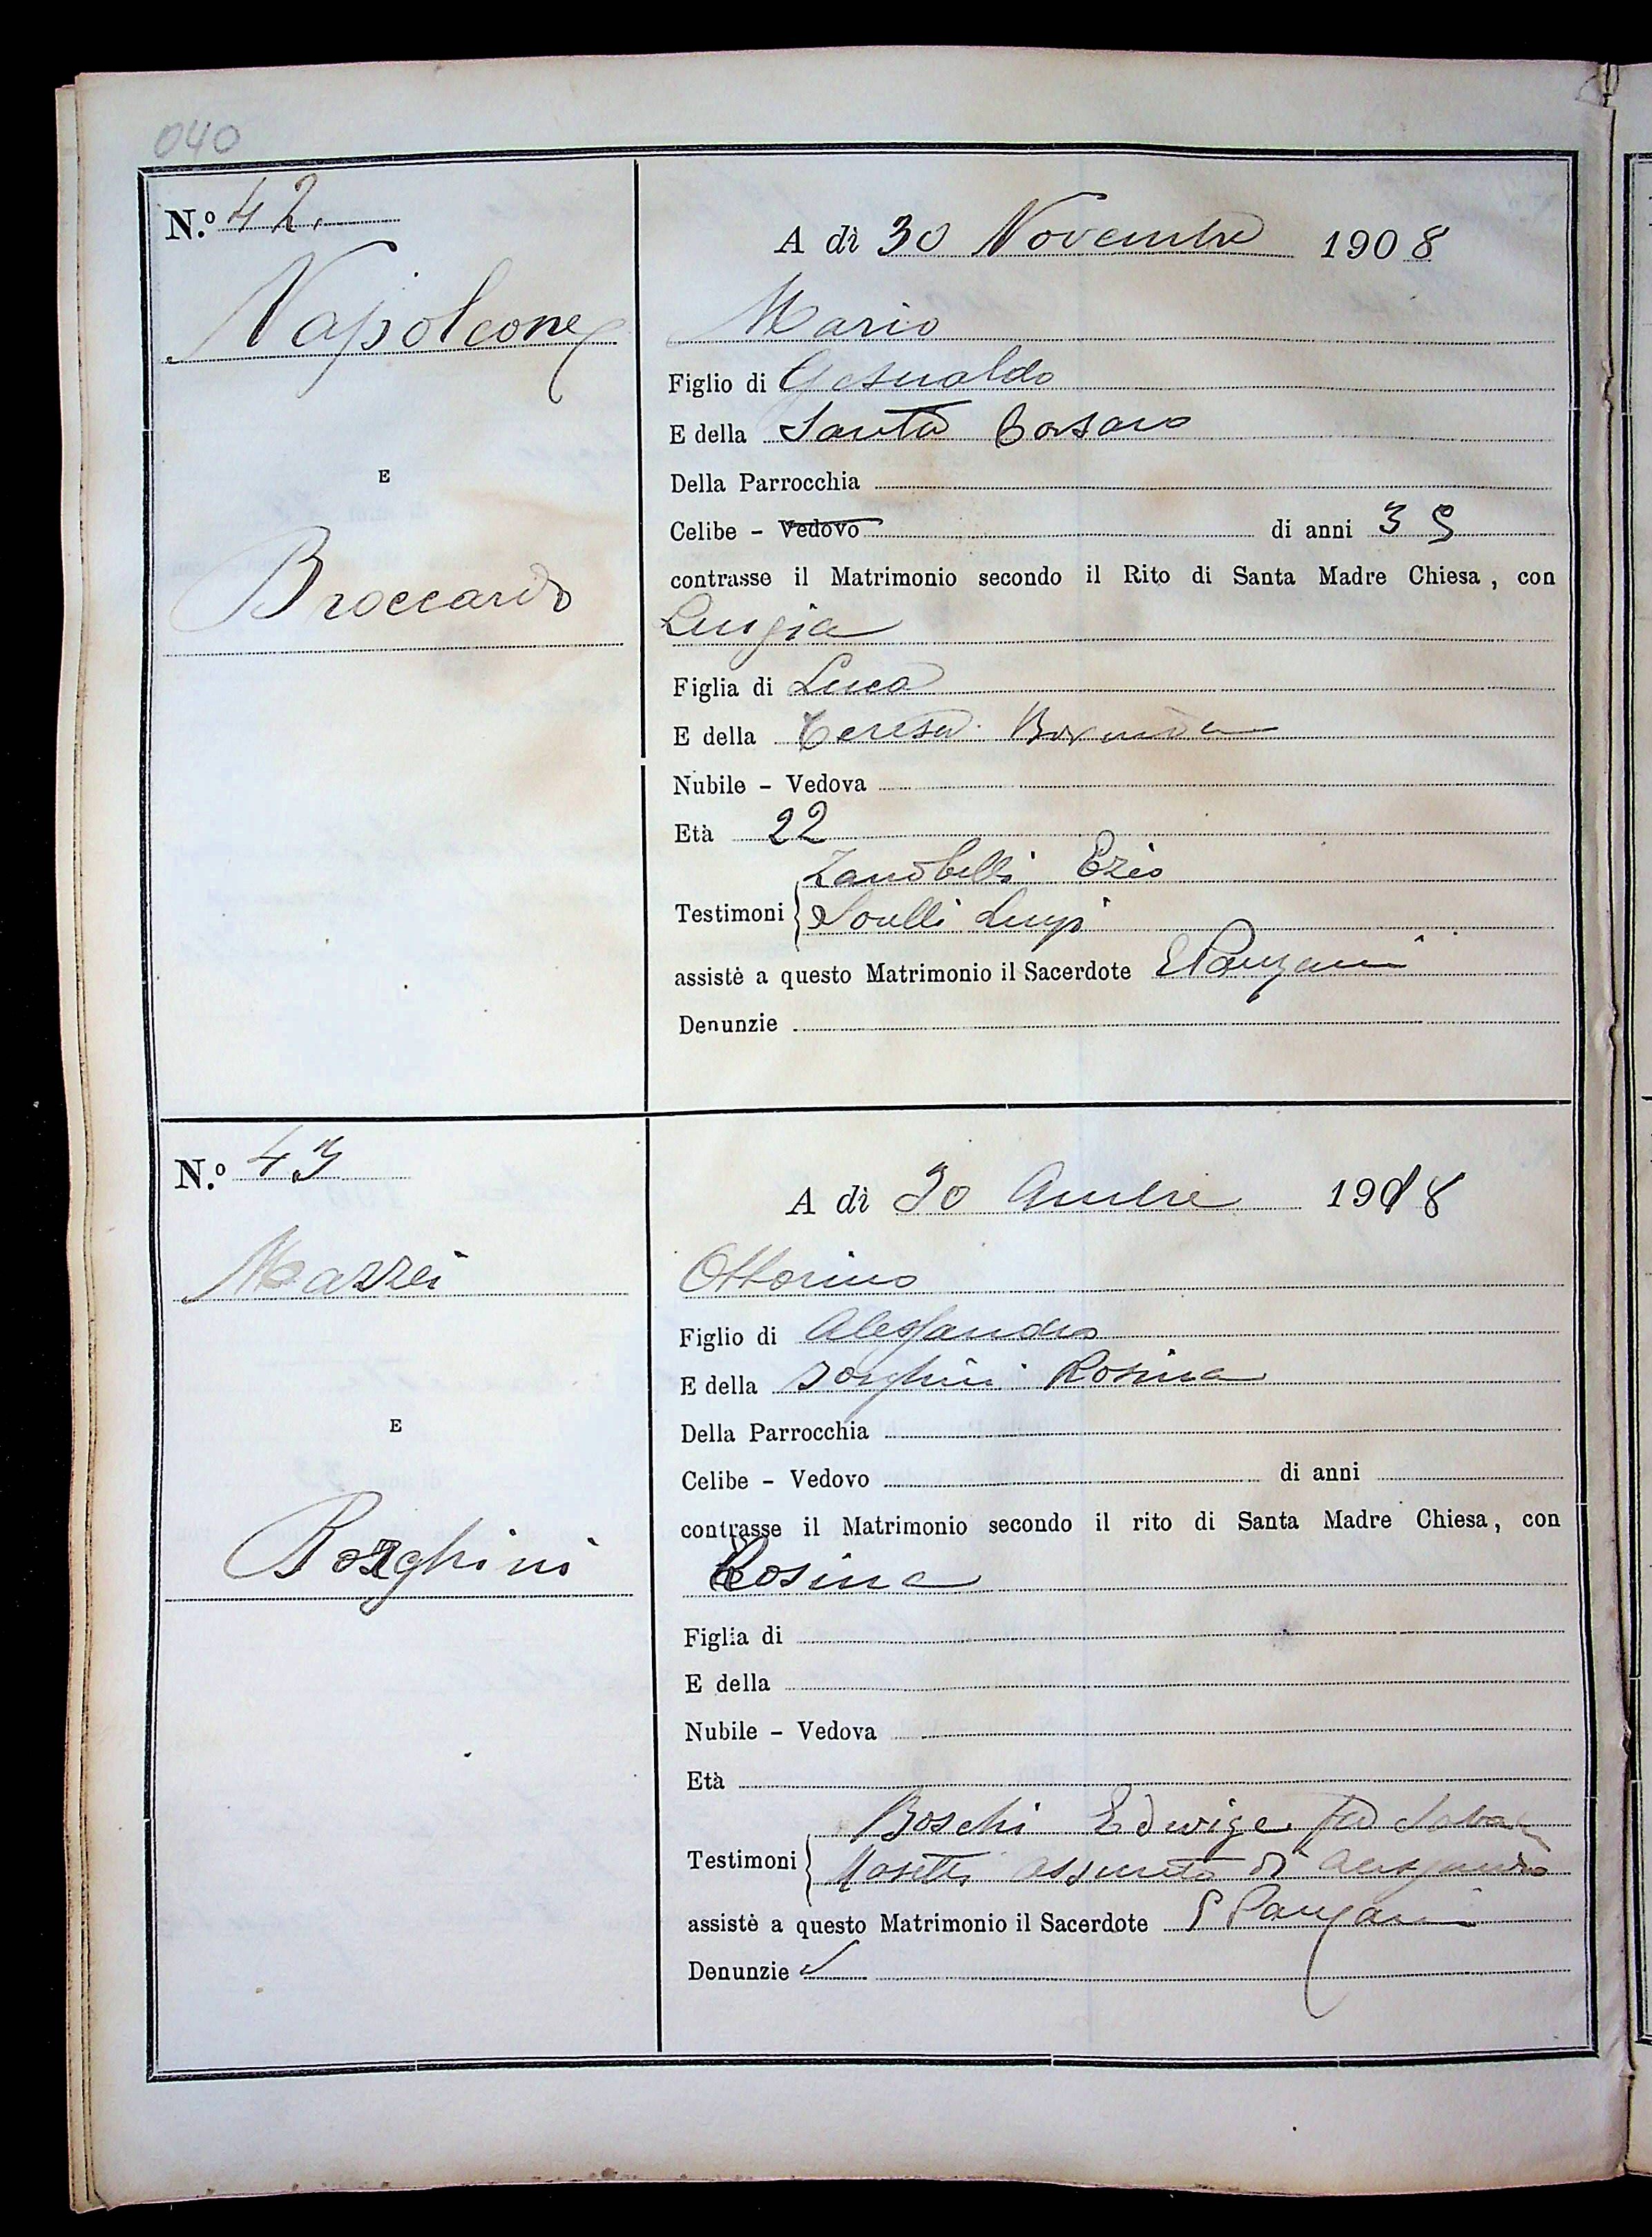 040
N.º 42.
Napoleone
E
Broccardo
A dì 30 Novembre 1908
Mario
Figlio di Gesualdo
E della Santa
Della Parrocchia
Celibe - Vedovo di anni 35
contrasse il Matrimonio secondo il Rito di Santa Madre Chiesa, con
Luigia
Figlia di Luca
E della Teresa
Nubile - Vedova
Età 22
Zanobelli Ezio
Testimoni Luigi
assistè a questo Matrimonio il Sacerdote
Denunzie
N.º 43
Mazzei
E
Borghini
A dì 30 1918
Ottorino
Figlio di Alessandro
E della Borghini Rosina
Della Parrocchia
Celibe - Vedovo di anni
contrasse il Matrimonio secondo il rito di Santa Madre Chiesa, con
Rosina
Figlia di
E della
Nubile - Vedova
Età
Boschi Edwige
Testimoni Masetti Assunta di Alessandro
assistè a questo Matrimonio il Sacerdote
Denunzie